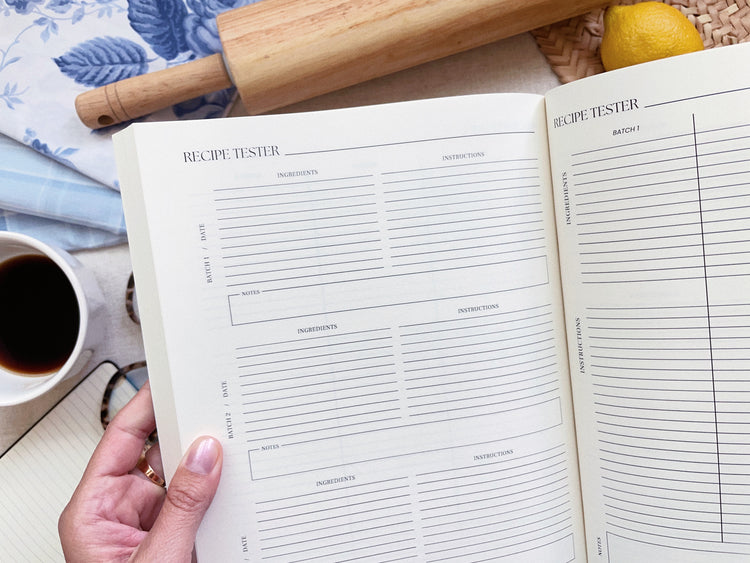 RECIPE TESTER
INGREDIENTS
INSTRUCTIONS
BATCH 1 / DATE
NOTES
INGREDIENTS
INSTRUCTIONS
BATCH 2 / DATE
NOTES
INGREDIENTS
INSTRUCTIONS
/ DATE
RECIPE TESTER
BATCH 1
INGREDIENTS
INSTRUCTIONS
NOTES